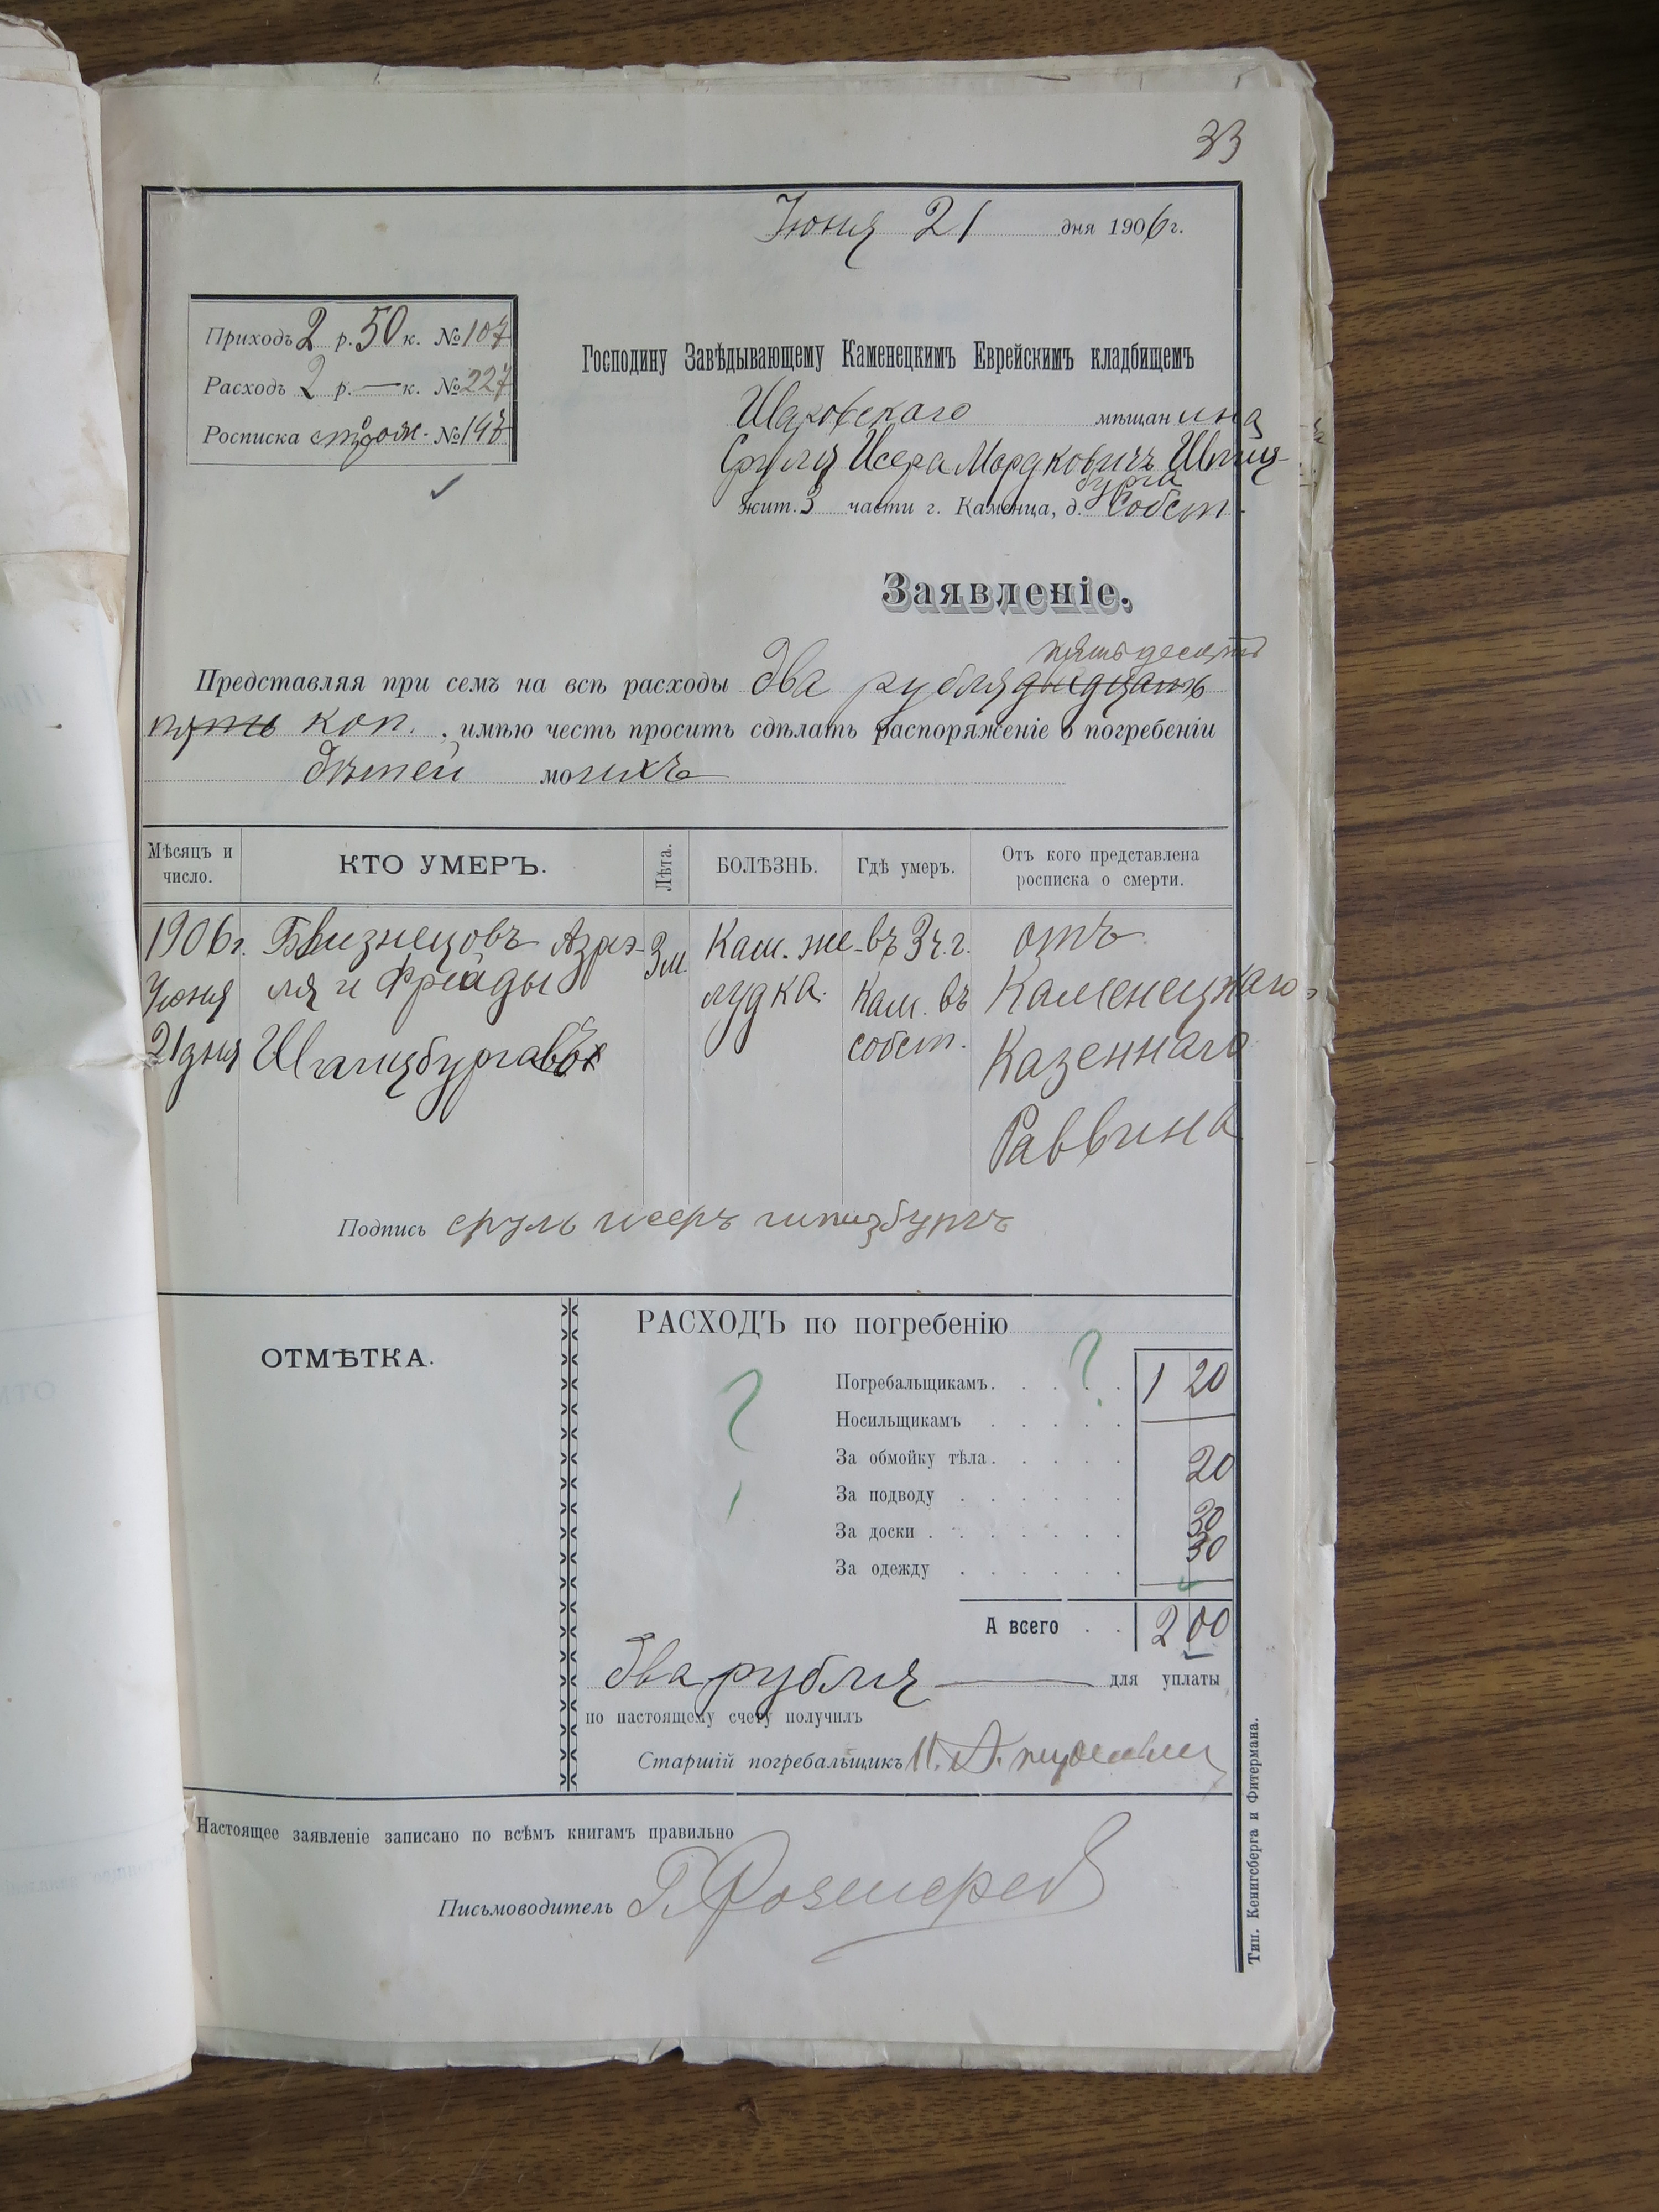 33
Июня 21 дня 1906 г.
Приходъ 2 р. 50 к. № 107
Расходъ 2 р. — к. № 227
Росписка № 147
Господину Завѣдывающему Каменецкимъ Еврейскимъ кладбищемъ
мѣщанина
Сруля Исера Мордковичъ Шпиц-
бурга
жит. 3 части г. Каменца, д. Собст.
Заявленіе.
пятьдесятъ
Представляя при семъ на всѣ расходы два рубля двадцать
пять коп. имѣю честь просить сдѣлать распоряженіе о погребеніи
дѣтей моихъ
Мѣсяцъ и число.
КТО УМЕРЪ.
Лѣта.
БОЛѢЗНЬ.
Гдѣ умеръ.
Отъ кого представлена росписка о смерти.
1906 г. Близнецовъ Азрэ- 3 м. Кат. же- въ 3 ч. г. отъ
Июня ля и Фрейды лудка. Кам. въ Каменецкаго
21 дня Шпицбурговъ собст. Казеннаго
Раввина
Подпись сруль исеръ шпицбургъ
ОТМѢТКА.
РАСХОДЪ по погребенію
Погребальщикамъ. . . . . 1 20
Носильщикамъ . . . . . —
За обмойку тѣла. . . . . 20
За подводу . . . . . .
За доски . . . . . . . 30
За одежду . . . . . . 30
А всего . . 2 00
два рубля — для уплаты
по настоящему счету получилъ
Старшій погребальщикъ
Настоящее заявленіе записано по всѣмъ книгамъ правильно
Письмоводитель
Тип. Кенигсберга и Фитермана.